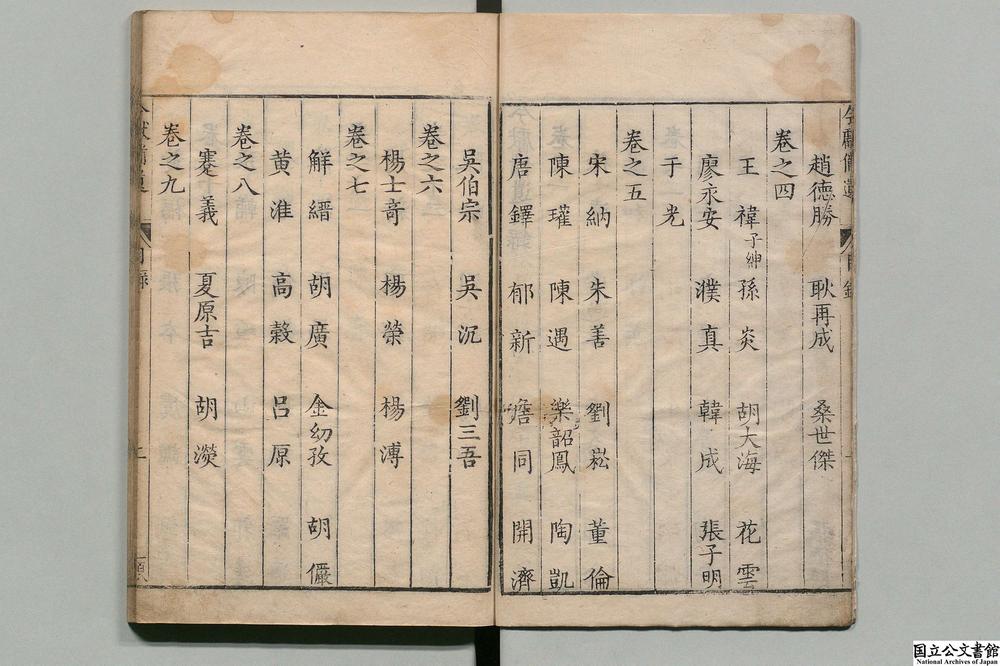 趙德勝　耿再成　桑世傑
卷之四
王禕子紳　孫炎　胡大海　花雲
廖永安　濮真　韓成　張子明
于光
卷之五
宋納　朱善　劉崧　董倫
陳瓘　陳遇　樂韶鳳　陶凱
唐鐸　郁新　詹同　開濟
吳伯宗　吳沉　劉三吾
卷之六
楊士竒　楊榮　楊溥
卷之七
解縉　胡廣　金幼孜　胡儼
黃淮　高穀　呂原
卷之八
蹇義　夏原吉　胡濙
卷之九
国立公文書館
National Archives of Japan